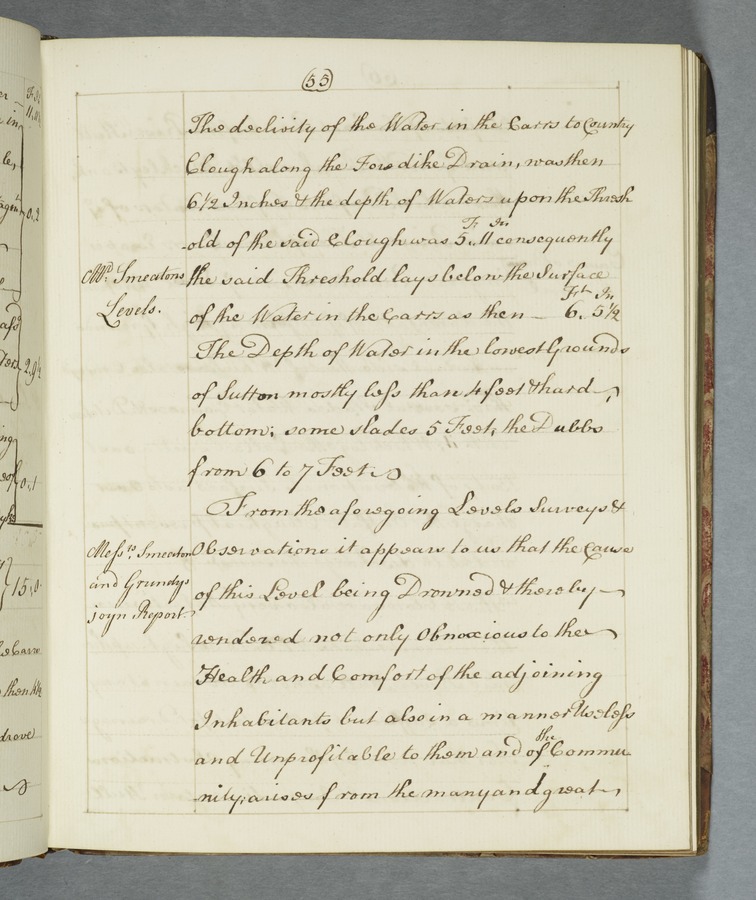 (55)
The declivity of the Water in the Carrs to Country
Clough along the Foredike Drain, was then
6 1/2 Inches & the depth of Waters upon the Thresh
-old of the said Clough was 5 F. 11 In consequently
Mr. Smeatons
Levels.
the said Threshold lays below the Surface
of the Water in the Carrs as then — 6 Ft. 5 1/2 In
The Depth of Water in the lowest Grounds
of Sutton mostly leſs than 4 feet & hard
bottom; some slades 5 Feet, the Dubbs
from 6 to 7 Feet.
From the aforegoing Levels Surveys &
Meſsrs. Smeaton
and Grundys
joyn Report.
Observations it appears to us that the Cause
of this Level being Drowned & thereby
rendered not only Obnoxious to the
Health and Comfort of the adjoining
Inhabitants but also in a manner Useleſs
and Unprofitable to them and of the Commu
nity; arises from the many and great,